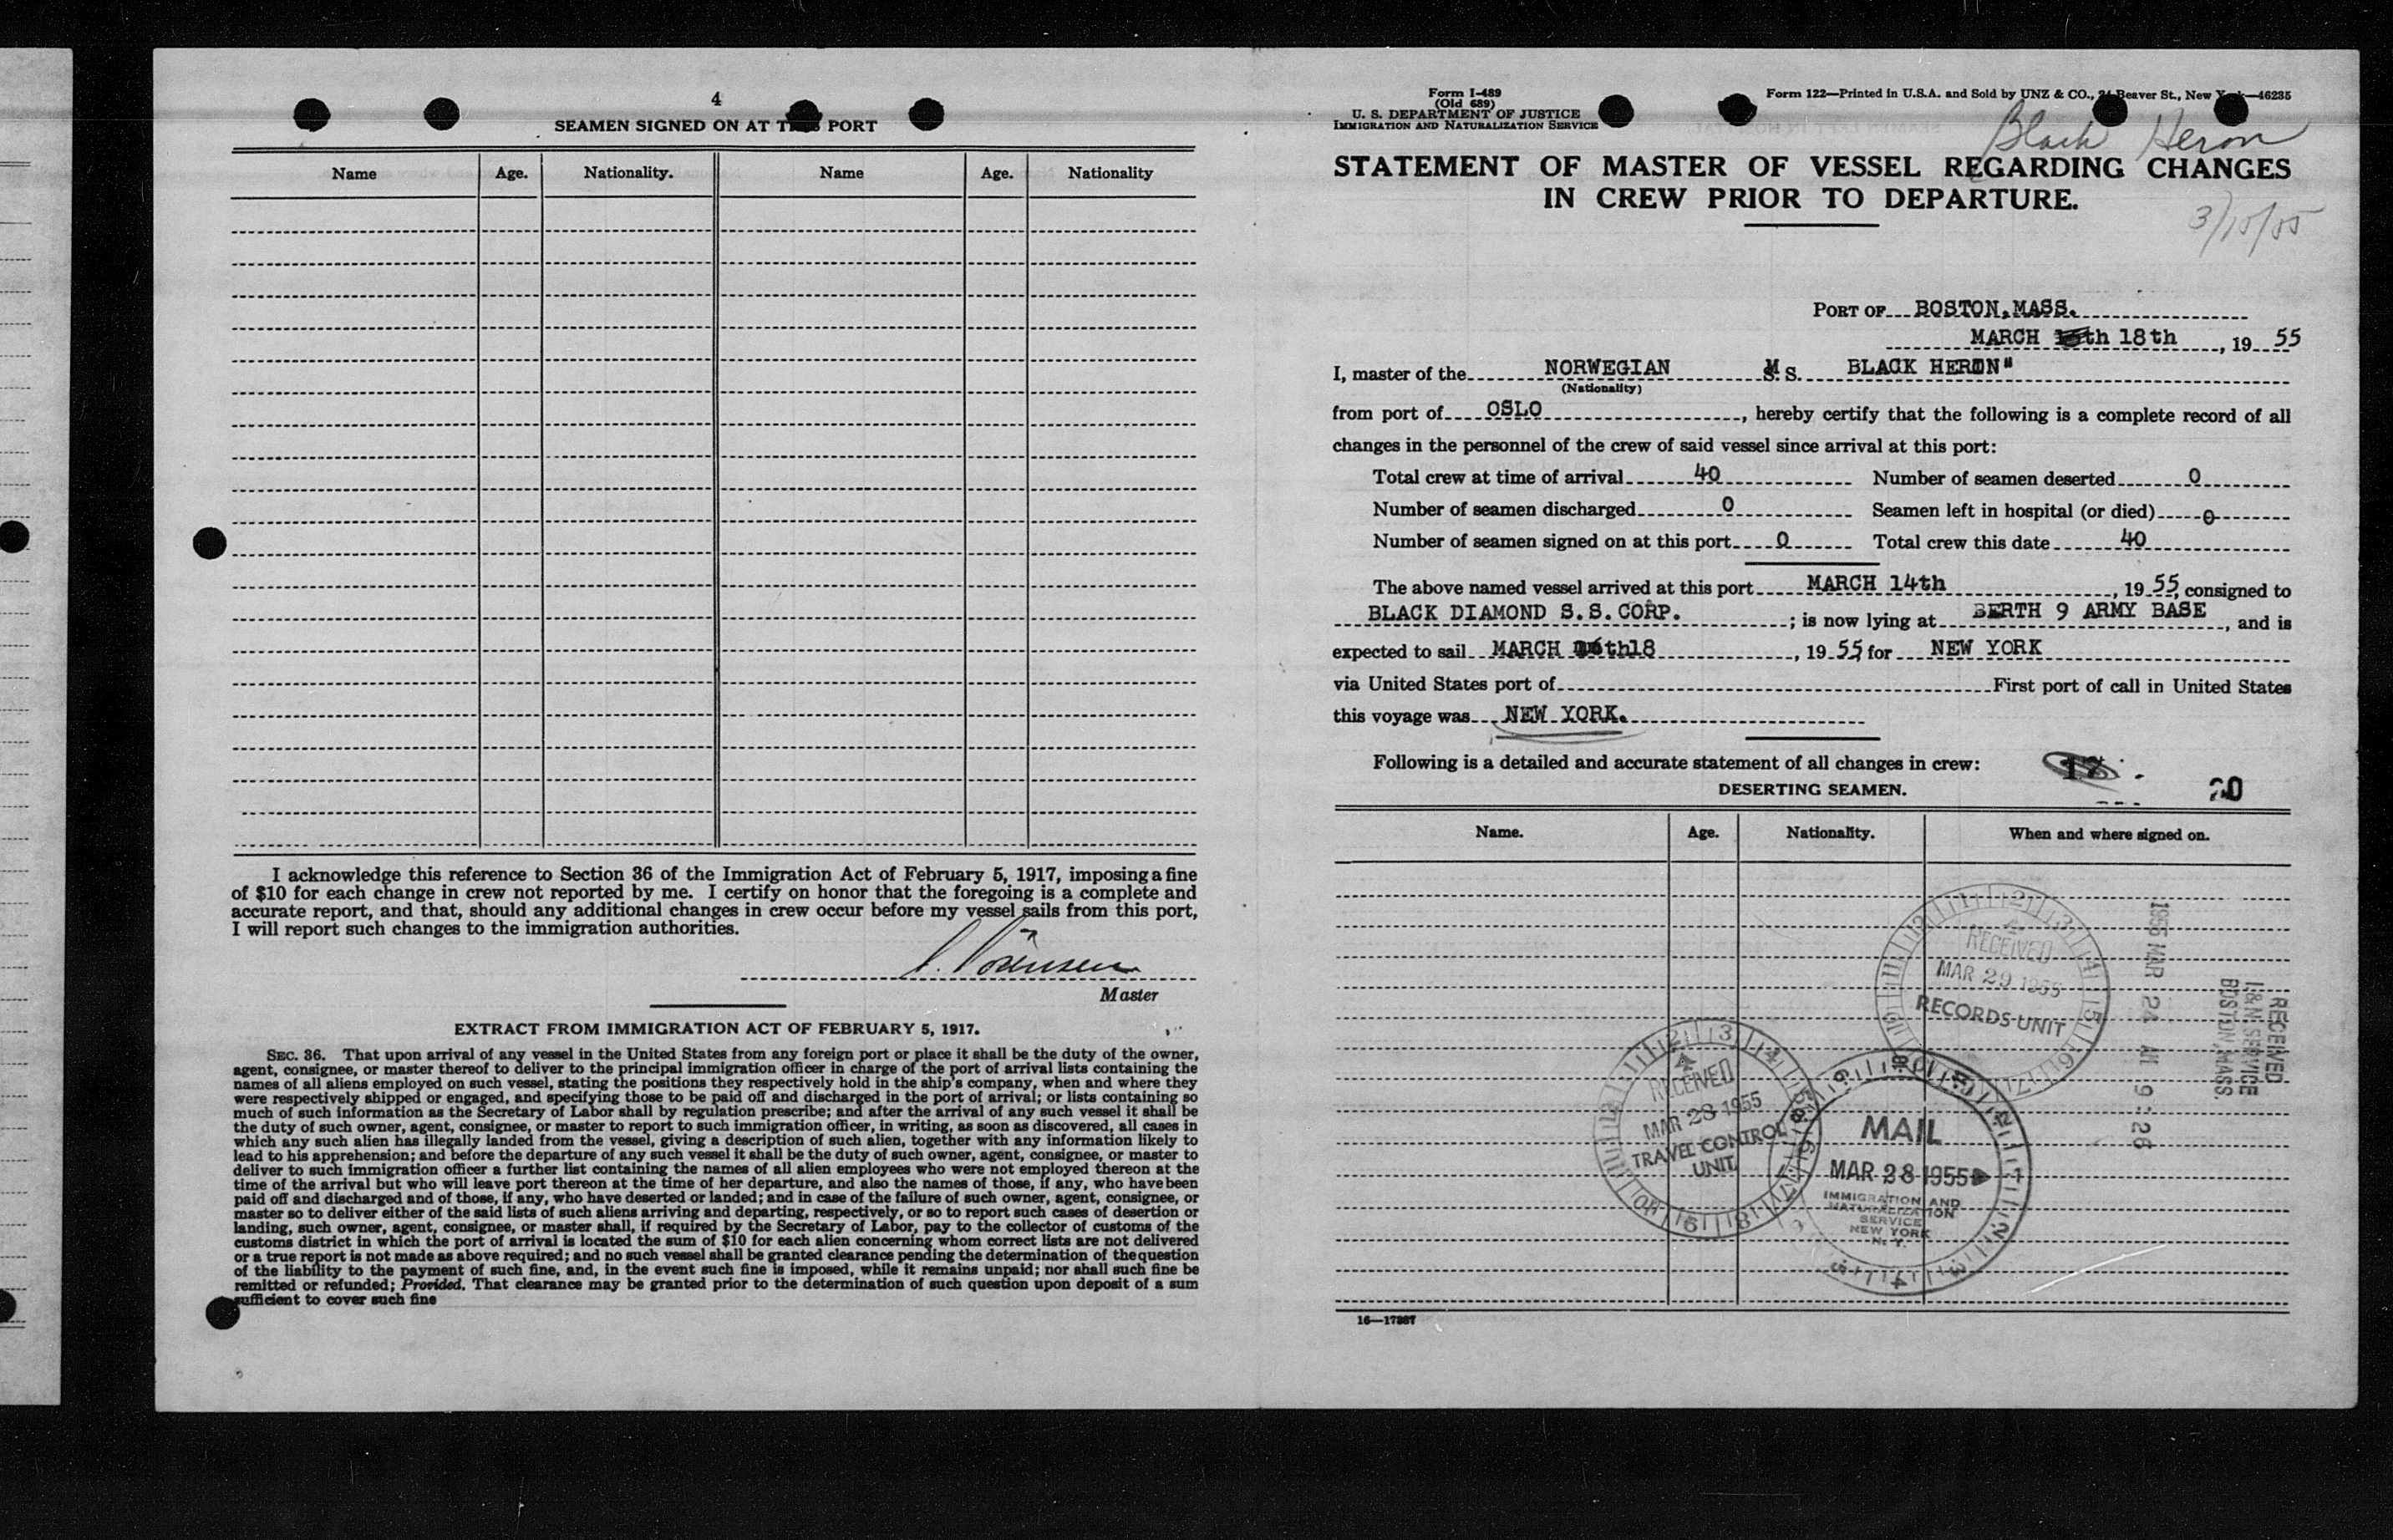 4
SEAMEN SIGNED ON AT THIS PORT
Name Age. Nationality. Name Age. Nationality
I acknowledge this reference to Section 36 of the Immigration Act of February 5, 1917, imposing a fine
of $10 for each change in crew not reported by me. I certify on honor that the foregoing is a complete and
accurate report, and that, should any additional changes in crew occur before my vessel sails from this port,
I will report such changes to the immigration authorities.
Master
EXTRACT FROM IMMIGRATION ACT OF FEBRUARY 5, 1917.
SEC. 36. That upon arrival of any vessel in the United States from any foreign port or place it shall be the duty of the owner,
agent, consignee, or master thereof to deliver to the principal immigration officer in charge of the port of arrival lists containing the
names of all aliens employed on such vessel, stating the positions they respectively hold in the ship's company, when and where they
were respectively shipped or engaged, and specifying those to be paid off and discharged in the port of arrival; or lists containing so
much of such information as the Secretary of Labor shall by regulation prescribe; and after the arrival of any such vessel it shall be
the duty of such owner, agent, consignee, or master to report to such immigration officer, in writing, as soon as discovered, all cases in
which any such alien has illegally landed from the vessel, giving a description of such alien, together with any information likely to
lead to his apprehension; and before the departure of any such vessel it shall be the duty of such owner, agent, consignee, or master to
deliver to such immigration officer a further list containing the names of all alien employees who were not employed thereon at the
time of the arrival but who will leave port thereon at the time of her departure, and also the names of those, if any, who have been
paid off and discharged and of those, if any, who have deserted or landed; and in case of the failure of such owner, agent, consignee, or
master so to deliver either of the said lists of such aliens arriving and departing, respectively, or so to report such cases of desertion or
landing, such owner, agent, consignee, or master shall, if required by the Secretary of Labor, pay to the collector of customs of the
customs district in which the port of arrival is located the sum of $10 for each alien concerning whom correct lists are not delivered
or a true report is not made as above required; and no such vessel shall be granted clearance pending the determination of the question
of the liability to the payment of such fine, and, in the event such fine is imposed, while it remains unpaid; nor shall such fine be
remitted or refunded; Provided, That clearance may be granted prior to the determination of such question upon deposit of a sum
sufficient to cover such fine
Form I-489
(Old 689)
U. S. DEPARTMENT OF JUSTICE
IMMIGRATION AND NATURALIZATION SERVICE
Form 122—Printed in U.S.A. and Sold by UNZ & CO., 24 Beaver St., New York—46235
Black Heron
STATEMENT OF MASTER OF VESSEL REGARDING CHANGES
IN CREW PRIOR TO DEPARTURE.
3/15/55
PORT OF BOSTON, MASS.
MARCH 18th, 19 55
I, master of the NORWEGIAN M S. BLACK HERON"
(Nationality)
from port of OSLO, hereby certify that the following is a complete record of all
changes in the personnel of the crew of said vessel since arrival at this port:
Total crew at time of arrival 40 Number of seamen deserted 0
Number of seamen discharged 0 Seamen left in hospital (or died) 0
Number of seamen signed on at this port 0 Total crew this date 40
The above named vessel arrived at this port MARCH 14th, 19 55, consigned to
BLACK DIAMOND S.S. CORP.; is now lying at BERTH 9 ARMY BASE, and is
expected to sail MARCH 18, 19 55, for NEW YORK
via United States port of First port of call in United States
this voyage was NEW YORK.
Following is a detailed and accurate statement of all changes in crew:
17
20
DESERTING SEAMEN.
Name. Age. Nationality. When and where signed on.
RECEIVED
MAR 29 1955
RECORDS UNIT
RECEIVED
MAR 28 1955
TRAVEL CONTROL
UNIT
MAIL
MAR 28 1955
IMMIGRATION AND
NATURALIZATION
SERVICE
NEW YORK
N. Y.
RECEIVED
I & N SERVICE
BOSTON, MASS.
1955 MAR 24 AM 9:26
16—17387